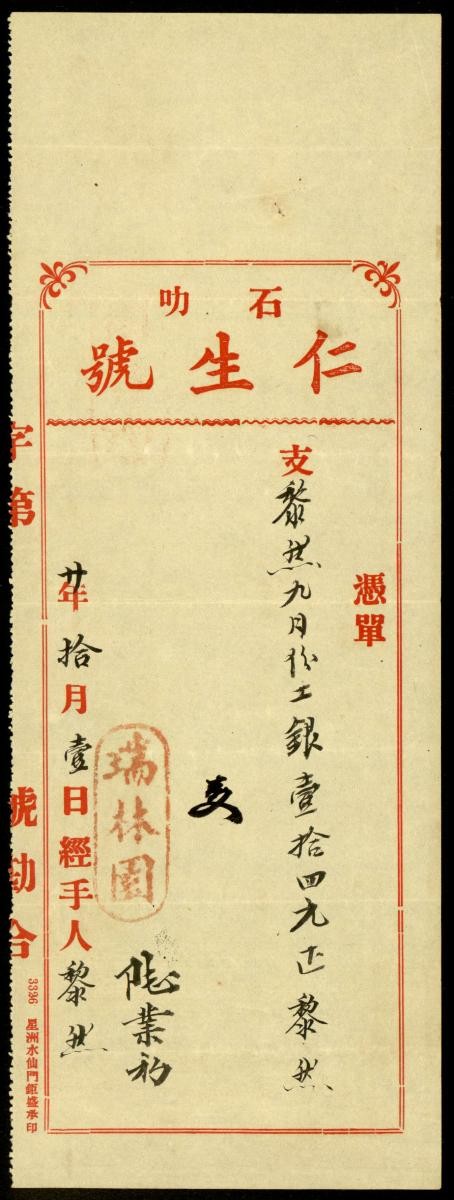 石叻
仁生號
憑單
支黎然九月份工銀壹拾四元正黎然
支
瑞林園
廿年拾月壹日經手人黎然
字第 號勘合
3396 星洲水仙門鉅盛承印